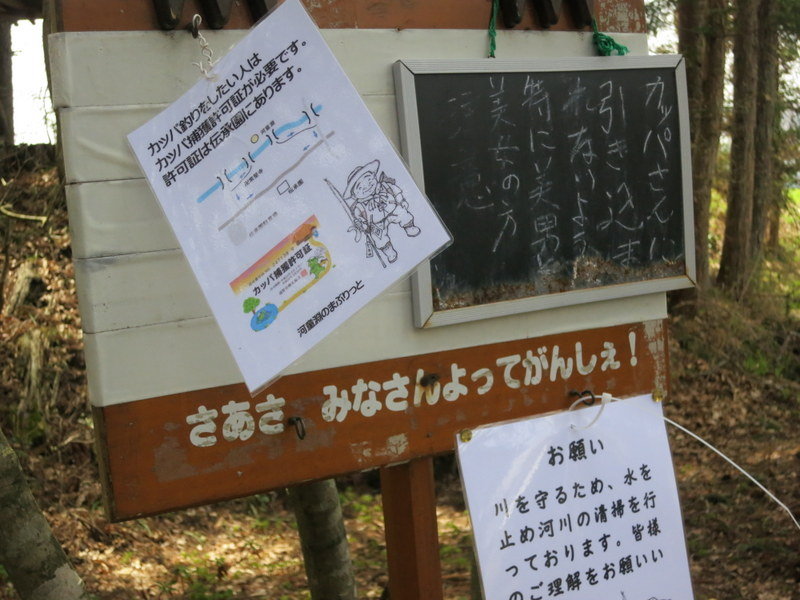 カッパ釣りをしたい人は
カッパ捕獲許可証が必要です。
許可証は伝承園にあります。
カッパ捕獲許可証
河童淵のまぶりっと
カッパさんに
引き込ま
れないよう
特に美男
美女の方
さあさ みなさんよってがんしぇ!
お願い
川を守るため、水を
止め河川の清掃を行
っております。皆様
のご理解をお願いい